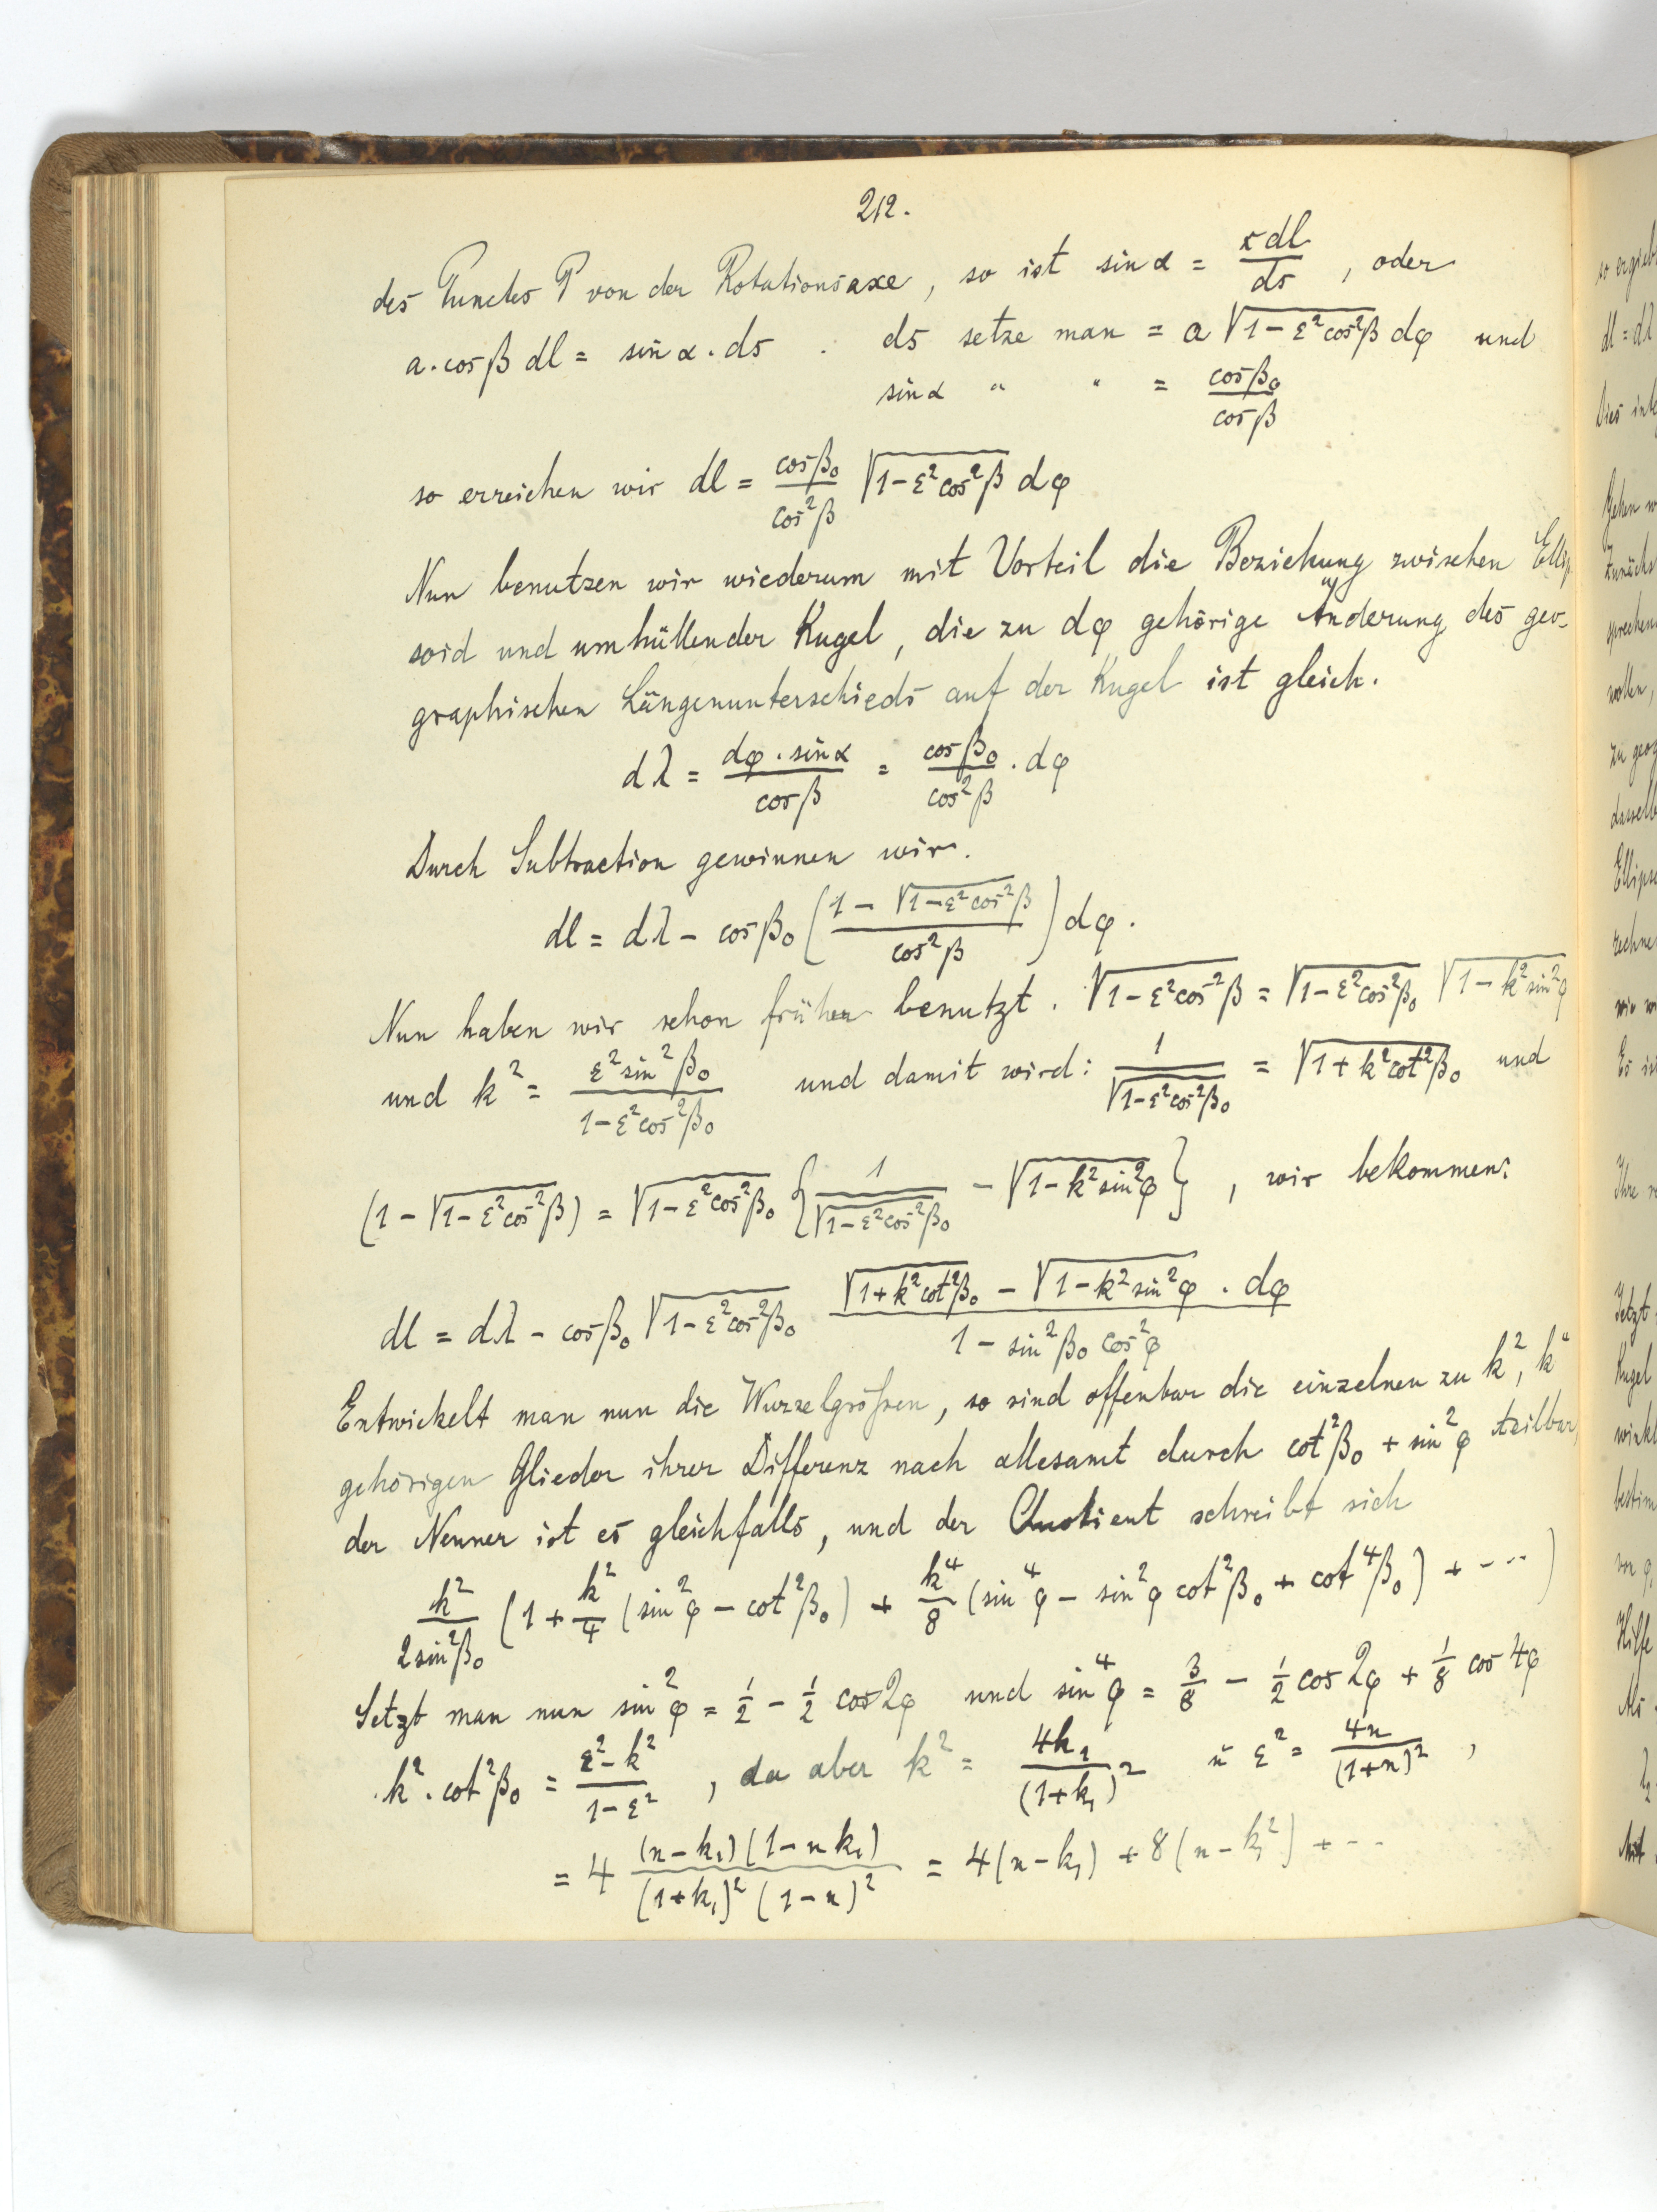 212.
des Punctes P von der Rotationsaxe, so ist sin α = r dl / ds , oder
a · cos β dl = sin α · ds . ds setze man = a √(1 − ε² cos² β) dφ und
sin α " " = cos β₀ / cos β
so erreichen wir dl = cos β₀ / cos² β √(1 − ε² cos² β) dφ
Nun benutzen wir wiederum mit Vorteil die Beziehung zwischen Ellip
soid und umhüllender Kugel, die zu dφ gehörige Änderung des geo-
graphischen Längenunterschieds auf der Kugel ist gleich.
dλ = dφ · sin α / cos β = cos β₀ / cos² β · dφ
Durch Subtraction gewinnen wir.
dl = dλ − cos β₀ ( (1 − √(1 − ε² cos² β)) / cos² β ) dφ.
Nun haben wir schon früher benutzt. √(1 − ε² cos² β) = √(1 − ε² cos² β₀) √(1 − k² sin² φ)
und k² = ε² sin² β₀ / (1 − ε² cos² β₀) und damit wird: 1 / √(1 − ε² cos² β₀) = √(1 + k² cot² β₀) und
(1 − √(1 − ε² cos² β)) = √(1 − ε² cos² β₀) { 1 / √(1 − ε² cos² β₀) − √(1 − k² sin² φ) } , wir bekommen:
dl = dλ − cos β₀ √(1 − ε² cos² β₀) (√(1 + k² cot² β₀) − √(1 − k² sin² φ) . dφ) / (1 − sin² β₀ cos² φ)
Entwickelt man nun die Wurzelgrößen, so sind offenbar die einzelnen zu k², k⁴
gehörigen Glieder ihrer Differenz nach allesamt durch cot² β₀ + sin² φ teilbar,
der Nenner ist es gleichfalls, und der Quotient schreibt sich
k² / 2 sin² β₀ (1 + k²/4 (sin² φ − cot² β₀) + k⁴/8 (sin⁴ φ − sin² φ cot² β₀ + cot⁴ β₀) + ...)
Setzt man nun sin² φ = 1/2 − 1/2 cos 2φ und sin⁴ φ = 3/8 − 1/2 cos 2φ + 1/8 cos 4φ
k² · cot² β₀ = (ε² − k²) / (1 − ε²) , da aber k² = 4k₁ / (1 + k₁)² u ε² = 4n / (1 + n)² ,
= 4 (n − k₁)(1 − n k₁) / (1 + k₁)² (1 − n)² = 4(n − k₁) + 8(n − k₁²) + ...